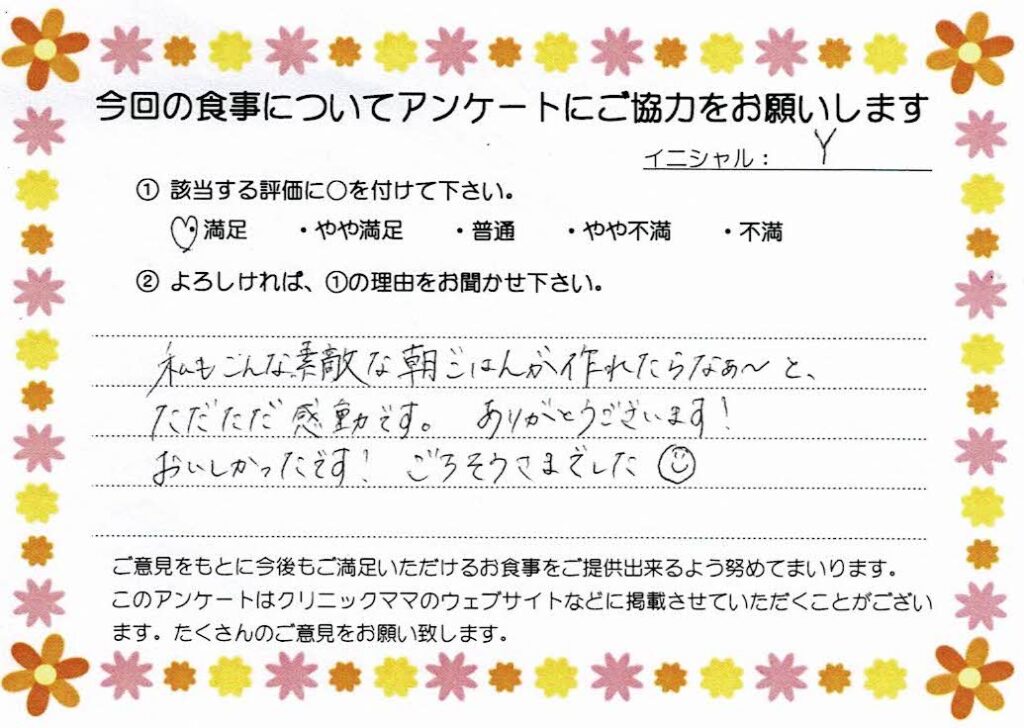 今回の食事についてアンケートにご協力をお願いします
イニシャル： Y
① 該当する評価に○を付けて下さい。
満足 ・やや満足 ・普通 ・やや不満 ・不満
② よろしければ、①の理由をお聞かせ下さい。
私もこんな素敵な朝ごはんが作れたらなぁ～と、
ただただ感動です。 ありがとうございます！
おいしかったです！ ごちそうさまでした
ご意見をもとに今後もご満足いただけるお食事をご提供出来るよう努めてまいります。
このアンケートはクリニックママのウェブサイトなどに掲載させていただくことがござい
ます。たくさんのご意見をお願い致します。